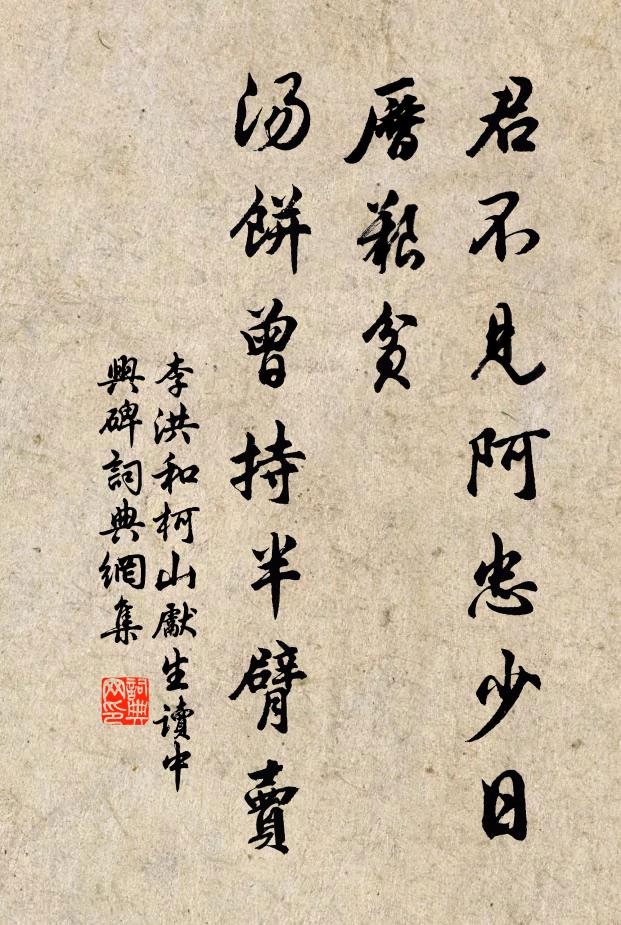 君不見阿忠少日
曆艱貧
湯餅曾持半臂賣
李洪和柯山獻生讀中
興碑詞典網集
詞典
网印